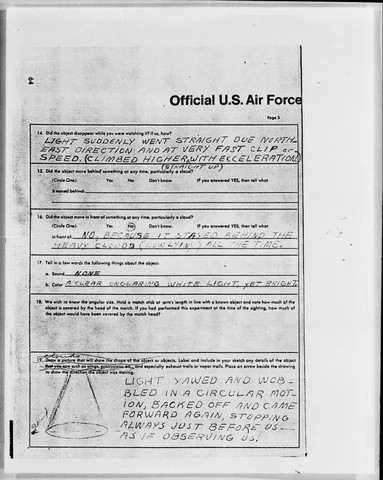 Official U.S. Air Force
Page 3
14. Did the object disappear while you were watching it? If so, how?
LIGHT SUDDENLY WENT STRAIGHT DUE NORTH-
EAST DIRECTION AND AT VERY FAST CLIP or
SPEED. (CLIMBED HIGHER WITH ECCELERATION)
(STRAIGHT UP)
15. Did the object move behind something at any time, particularly a cloud?
(Circle One): Yes No Don't know. If you answered YES, then tell what
it moved behind:
16. Did the object move in front of something at any time, particularly a cloud?
(Circle One): Yes No Don't know. If you answered YES, then tell what
in front of NO, BECAUSE IT STAYED BEHIND THE
HEAVY CLOUDS (LOWLYING) ALL THE TIME.
17. Tell in a few words the following things about the object:
a. Sound NONE
b. Color A CLEAR UNGLARING WHITE LIGHT, YET BRIGHT
18. We wish to know the angular size. Hold a match stick at arm's length in line with a known object and note how much of the
object is covered by the head of the match. If you had performed this experiment at the time of the sighting, how much of
the object would have been covered by the match head?
clouds
19. Draw a picture that will show the shape of the object or objects. Label and include in your sketch any details of the object
that you saw such as wings, protrusions, etc., and especially exhaust trails or vapor trails. Place an arrow beside the drawing
to show the direction the object was moving.
LIGHT YAWED AND WOB-
BLED IN A CIRCULAR MOT-
ION, BACKED OFF AND CAME
FORWARD AGAIN, STOPPING
ALWAYS JUST BEFORE US—
AS IF OBSERVING US!